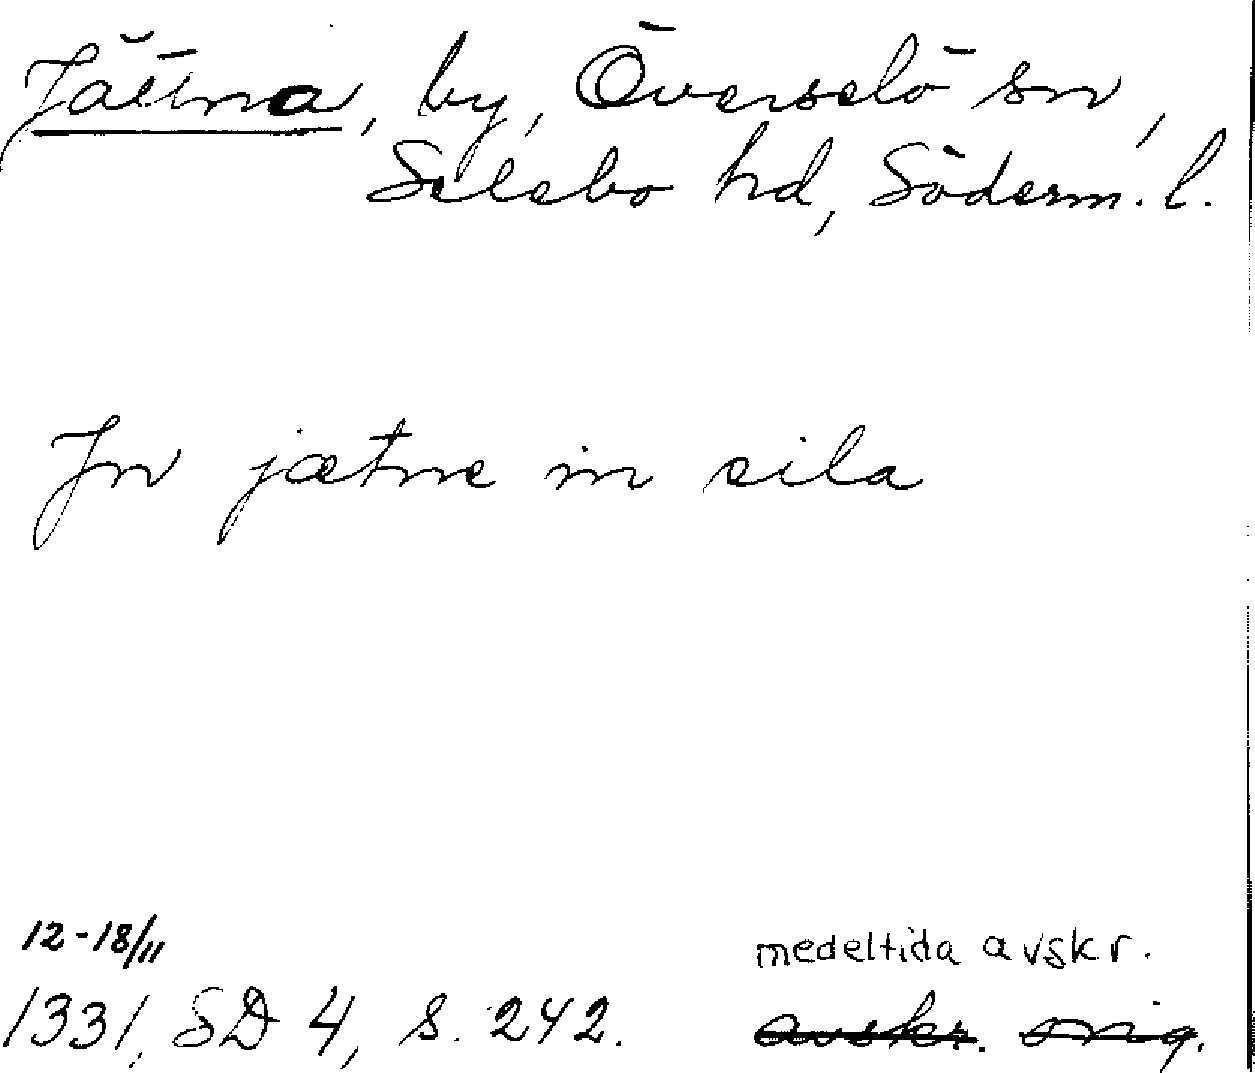 Jätna, by, Överselö sn,
Selebo hd, Söderm. l.
Jn jætne in sila
12-18/11
medeltida avskr.
1331, SD 4, s. 242.
avskr. orig.